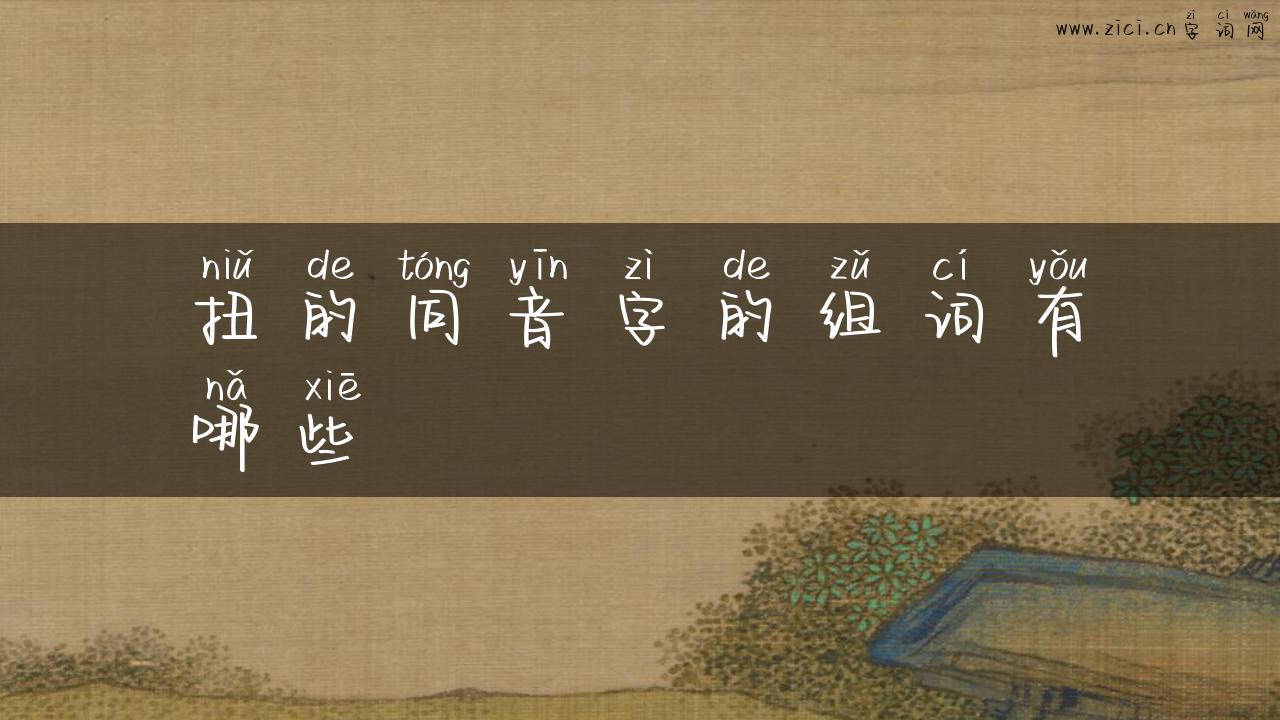 zì cí wǎng
www.zici.cn 字词网
niǔ de tóng yīn zì de zǔ cí yǒu
扭的同音字的组词有
nǎ xiē
哪些